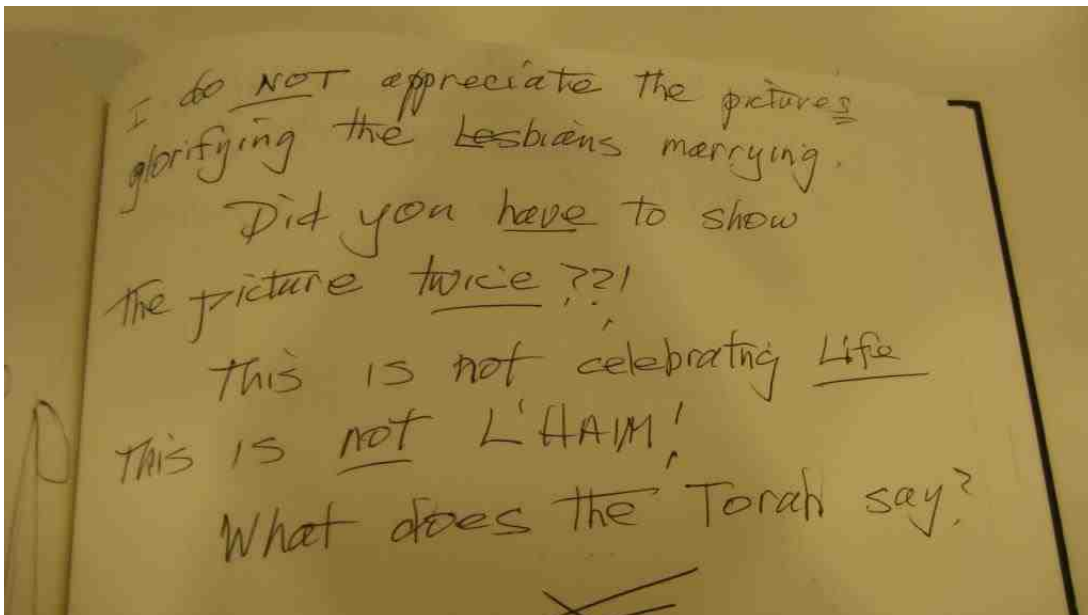 I do NOT appreciate the pictures
glorifying the Lesbians marrying.
Did you have to show
the picture twice ??!
This is not celebratng Life
This is not L'HAIM!
What does the Torah say?